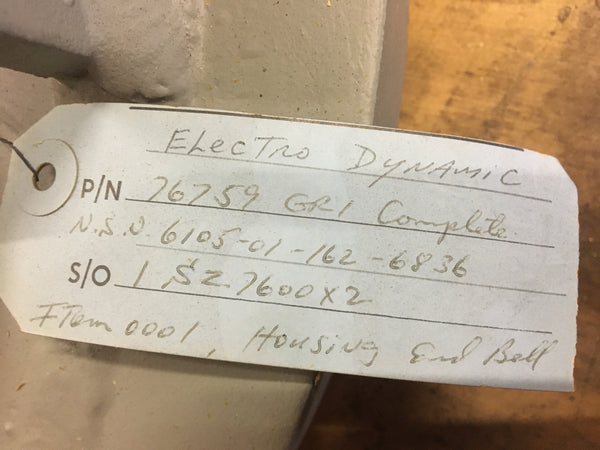 Electro Dynamic
P/N 76759 GR1 Complete
N.S.N. 6105-01-162-6836
S/O 1 SZ 7600x2
Item 0001, Housing End Bell